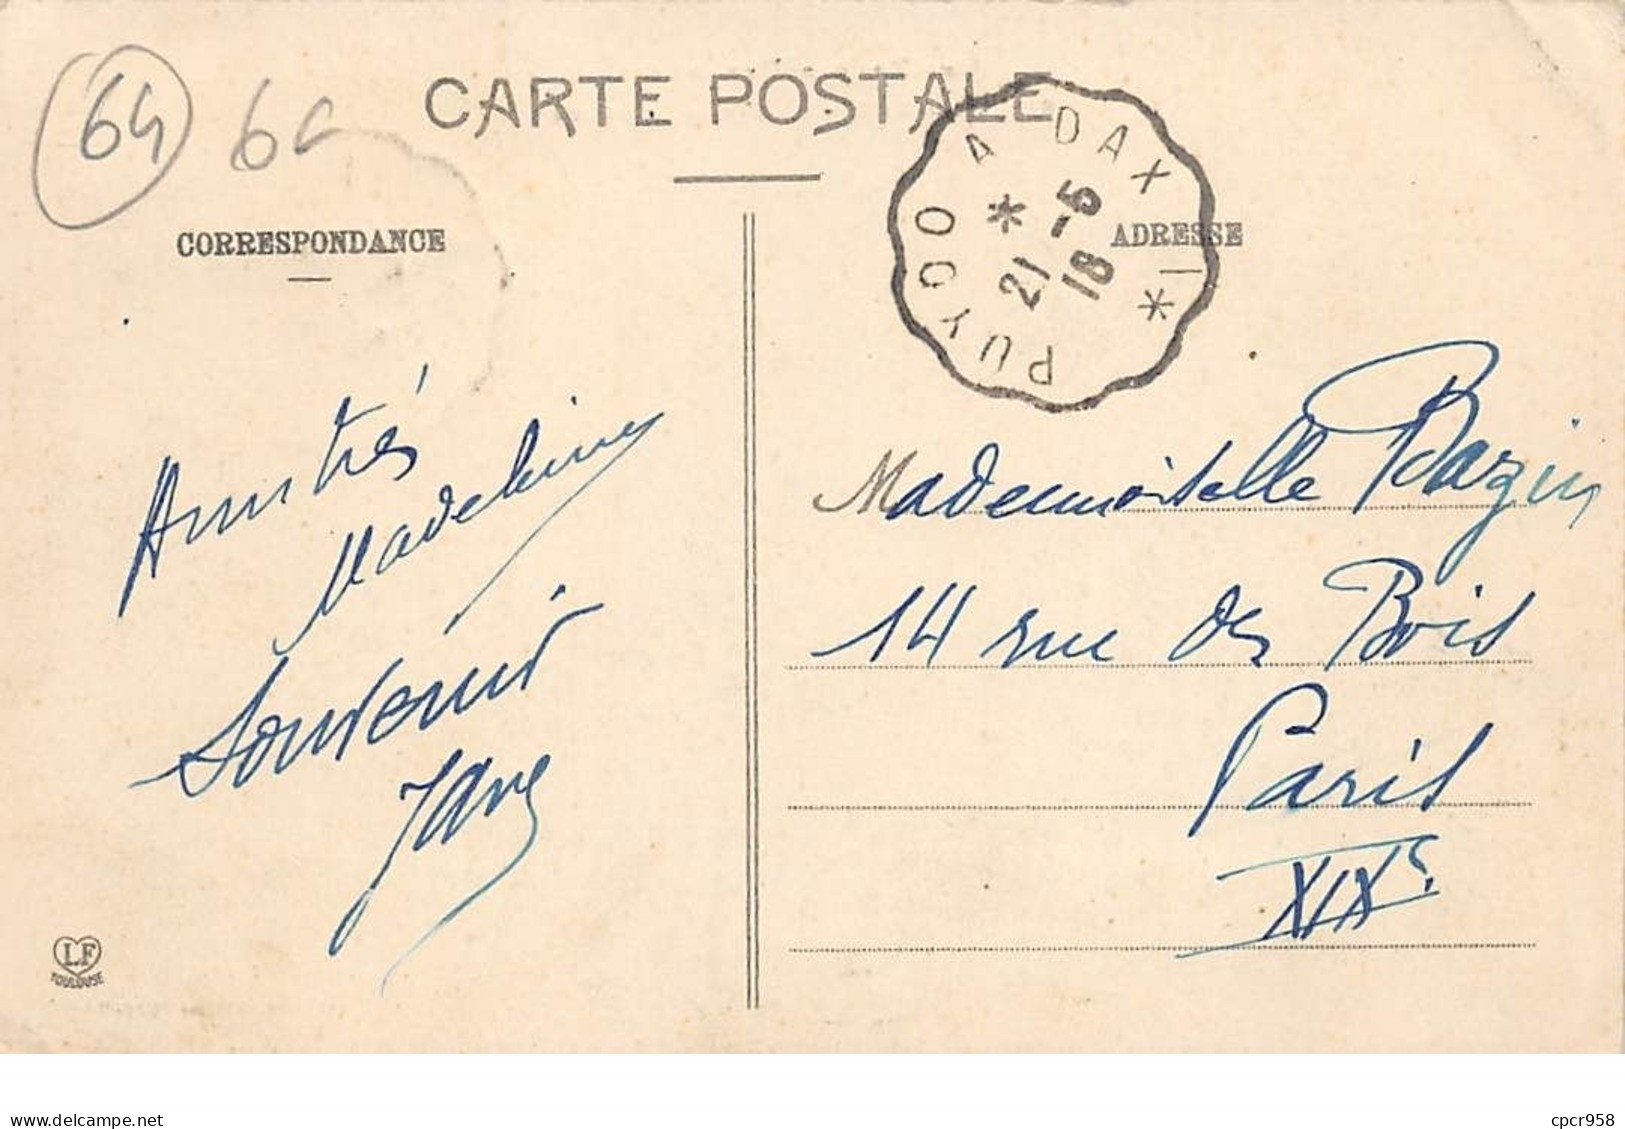 64 64
CARTE POSTALE
PUYOO A DAX 1°
* 21 -5 18 *
CORRESPONDANCE
ADRESSE
Amitiés
Madeleine
Souvenir
Mademoiselle Bazin
14 rue des Bois
Paris
XIXe
LF
TOULOUSE
delcampe.net
cpcr958